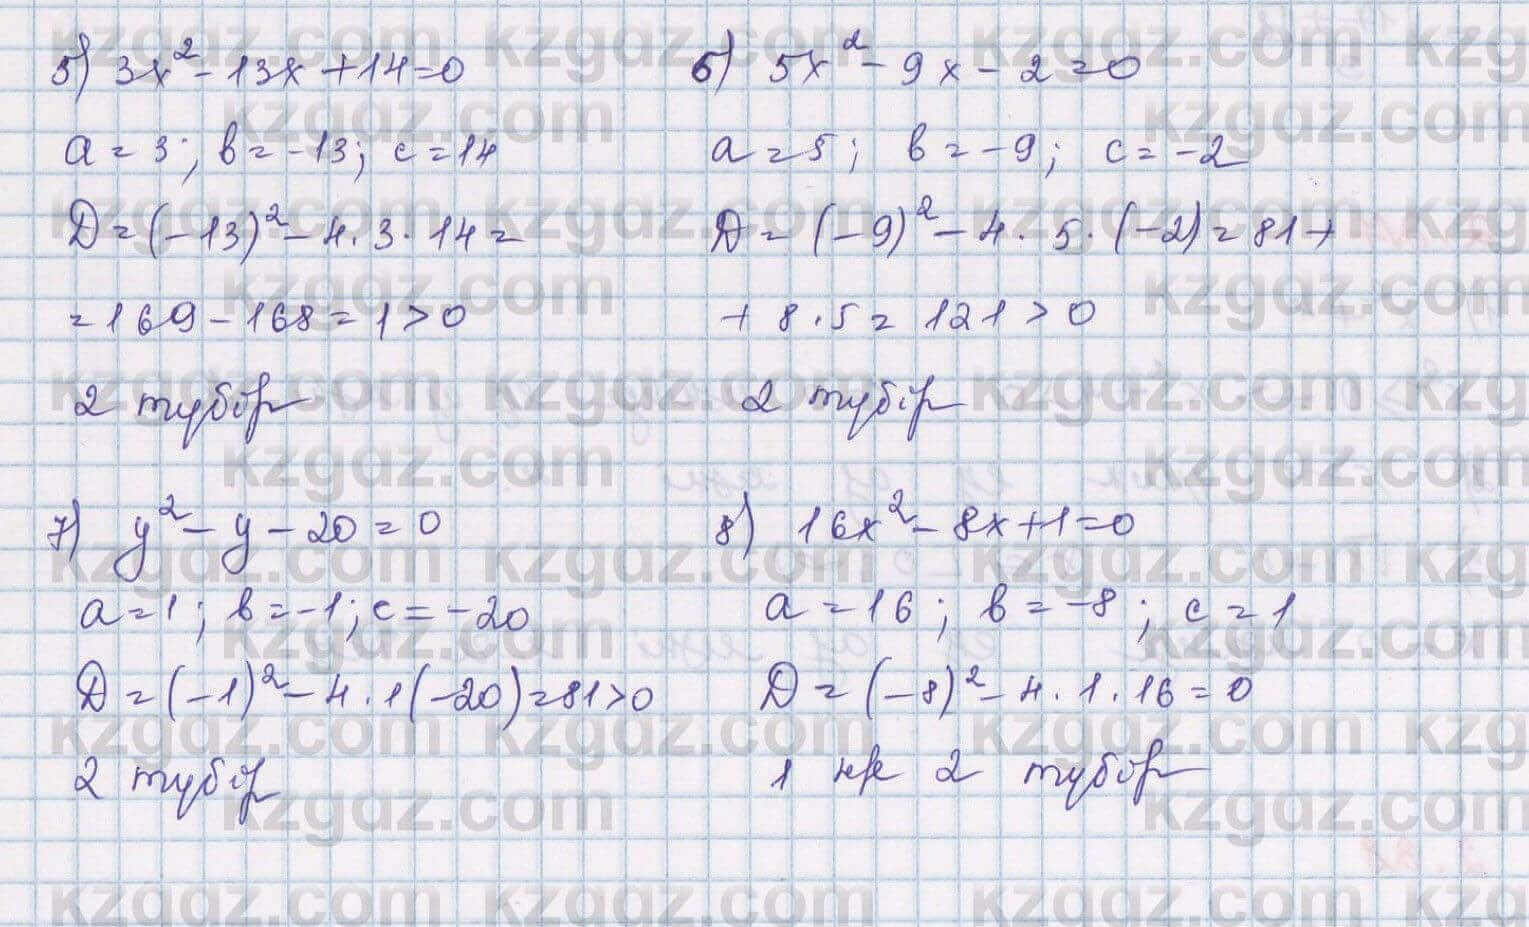 5) 3x² - 13x + 14 = 0
a = 3; в = -13; c = 14
D = (-13)² - 4 · 3 · 14 =
= 169 - 168 = 1 > 0
2 түбір
6) 5x² - 9x - 2 = 0
a = 5; в = -9; c = -2
D = (-9)² - 4 · 5 · (-2) = 81 +
+ 8 · 5 = 121 > 0
2 түбір
7) y² - y - 20 = 0
a = 1; в = -1; c = -20
D = (-1)² - 4 · 1(-20) = 81 > 0
2 түбір
8) 16x² - 8x + 1 = 0
a = 16; в = -8; c = 1
D = (-8)² - 4 · 1 · 16 = 0
1 не 2 түбір
kzgdz.com